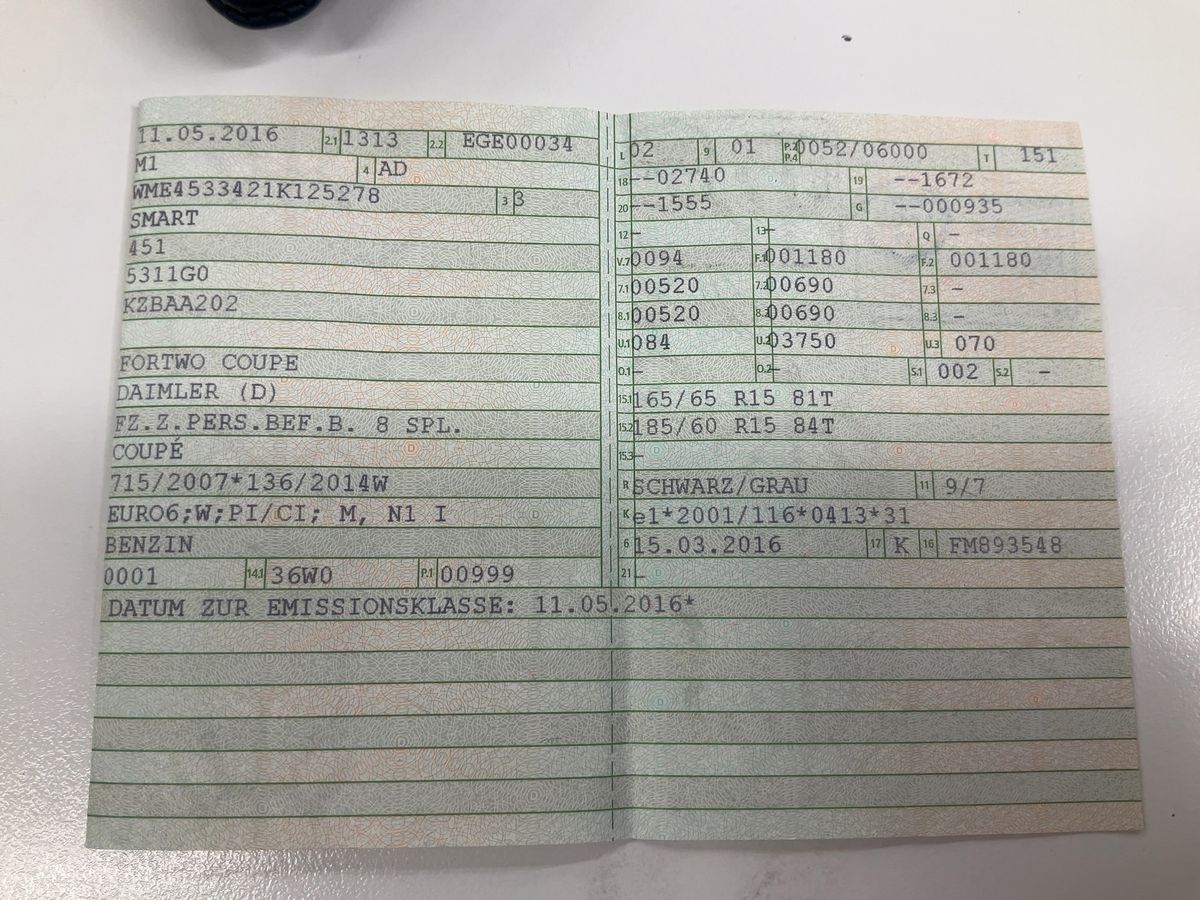 11.05.2016 2.1 1313 2.2 EGE00034
M1 4 AD
WME4533421K125278 3 3
SMART
451
5311G0
KZBAA202
FORTWO COUPE
DAIMLER (D)
FZ.Z.PERS.BEF.B. 8 SPL.
COUPÉ
715/2007*136/2014W
EURO6;W;PI/CI; M, N1 I
BENZIN
0001 14.1 36W0 P.1 00999
DATUM ZUR EMISSIONSKLASSE: 11.05.2016*
L 02 9 01 P.2 P.4 0052/06000 T 151
18 --02740 19 --1672
20 --1555 G --000935
12 - 13 - Q -
V.7 0094 F.1 001180 F.2 001180
7.1 00520 7.2 00690 7.3 -
8.1 00520 8.2 00690 8.3 -
U.1 084 U.2 03750 U.3 070
O.1 - O.2 - S.1 002 S.2 -
15.1 165/65 R15 81T
15.2 185/60 R15 84T
15.3 -
R SCHWARZ/GRAU 11 9/7
K e1*2001/116*0413*31
6 15.03.2016 17 K 16 FM893548
21 -